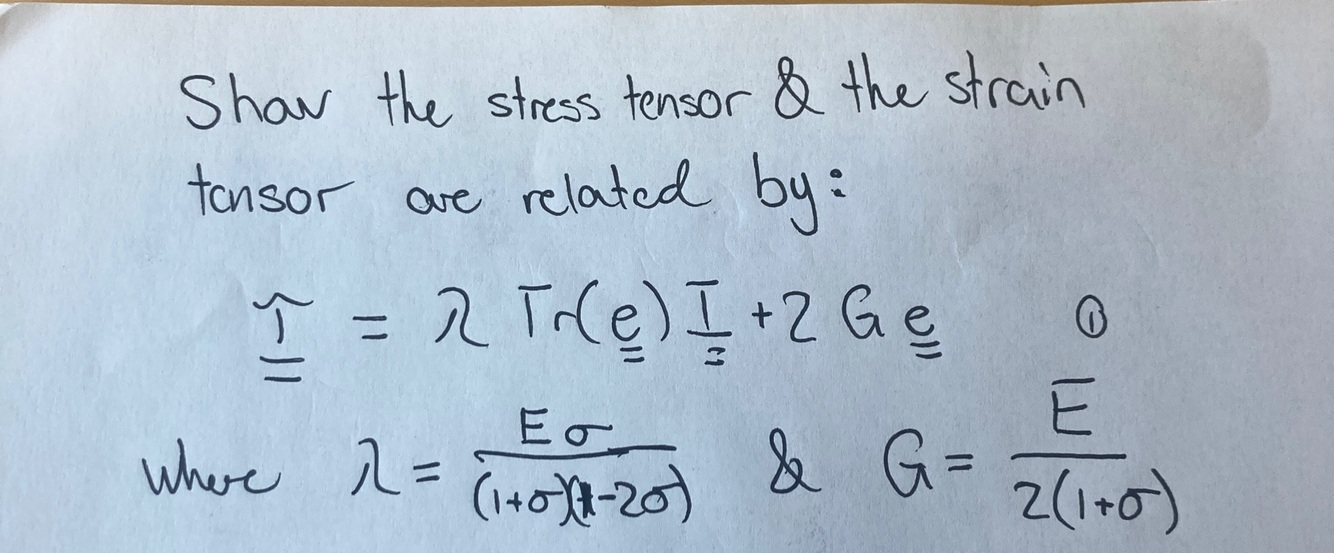 Show the stress tensor & the strain
tensor are related by:
τ = λ Tr(e) I + 2 G e ①
where λ = Eσ/((1+σ)(1-2σ)) & G = E/(2(1+σ))